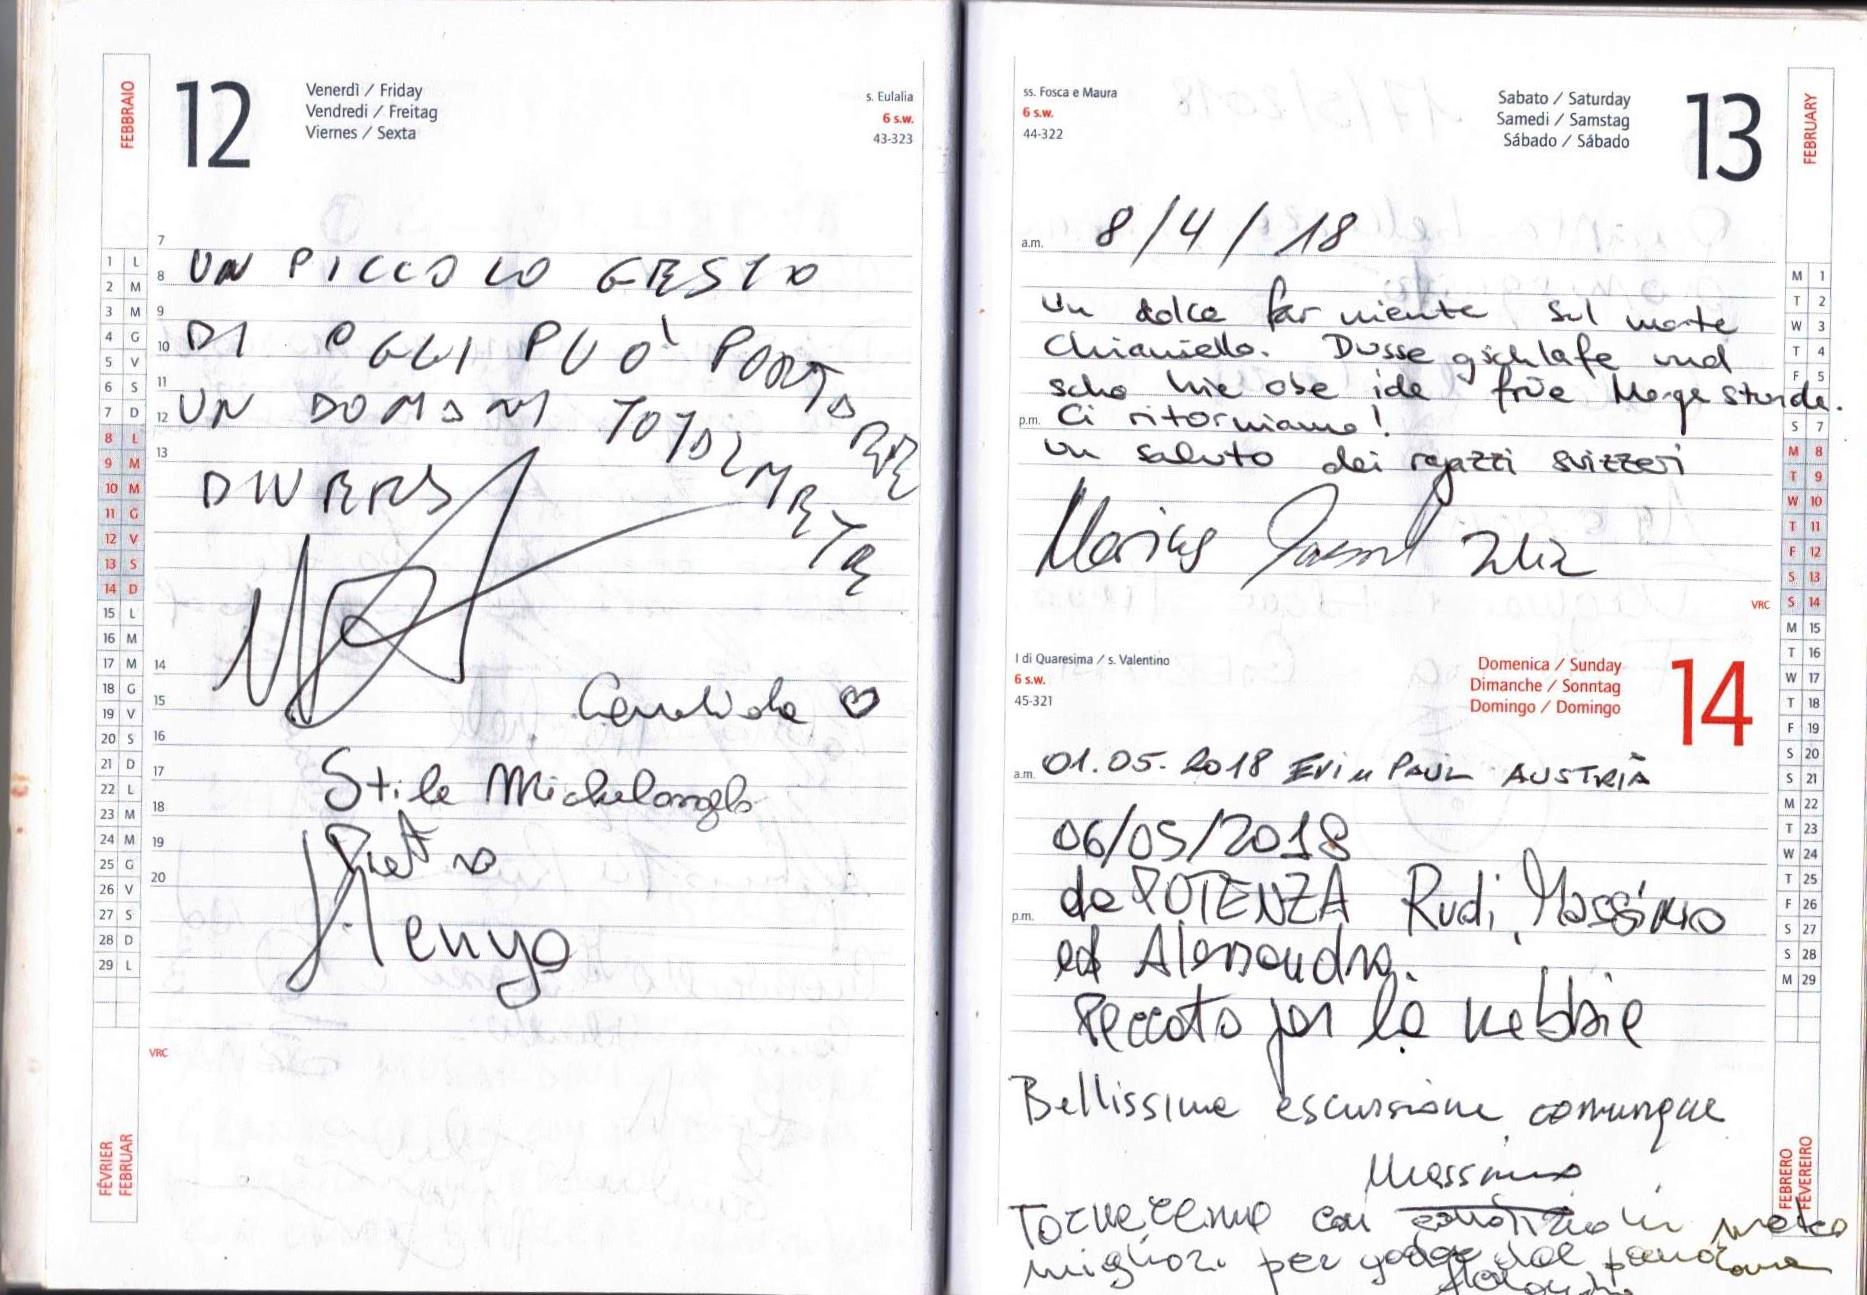 FEBBRAIO
12
Venerdì / Friday
Vendredi / Freitag
Viernes / Sexta
s. Eulalia
6 s.w.
43-323
7
8
9
10
11
12
13
14
15
16
17
18
19
20
1 L
2 M
3 M
4 G
5 V
6 S
7 D
8 L
9 M
10 M
11 G
12 V
13 S
14 D
15 L
16 M
17 M
18 G
19 V
20 S
21 D
22 L
23 M
24 M
25 G
26 V
27 S
28 D
29 L
UN PICCOLO GESTO
DI OGGI PUO' PORTARE
UN DOMANI TOTALMENTE
DIVERSO
Candida
Stile Michelangelo
Pietro
VRC
FÉVRIER
FEBRUAR
ss. Fosca e Maura
6 s.w.
44-322
Sabato / Saturday
Samedi / Samstag
Sábado / Sábado
13
FEBRUARY
a.m.
8/4/18
un dolce far niente sul monte
Chianiello. Dusse gschlafe und
scho hie obe ide früe Morge stunde.
p.m.
Ci ritorniamo!
un saluto dei ragazzi svizzeri
Marius
VRC
M 1
T 2
W 3
T 4
F 5
S 7
M 8
T 9
W 10
T 11
F 12
S 13
S 14
M 15
T 16
W 17
T 18
F 19
S 20
S 21
M 22
T 23
W 24
T 25
F 26
S 27
S 28
M 29
I di Quaresima / s. Valentino
6 s.w.
45-321
Domenica / Sunday
Dimanche / Sonntag
Domingo / Domingo
14
a.m.
01.05.2018 PAUL AUSTRIA
06/05/2018
da POTENZA Rudi, Massimo
p.m.
ed Alessandra.
Peccato per la nebbia
Bellissima escursione comunque
Massimo
Torneremo con in meteo
migliori per godere del panorama
FEBRERO
FEVEREIRO